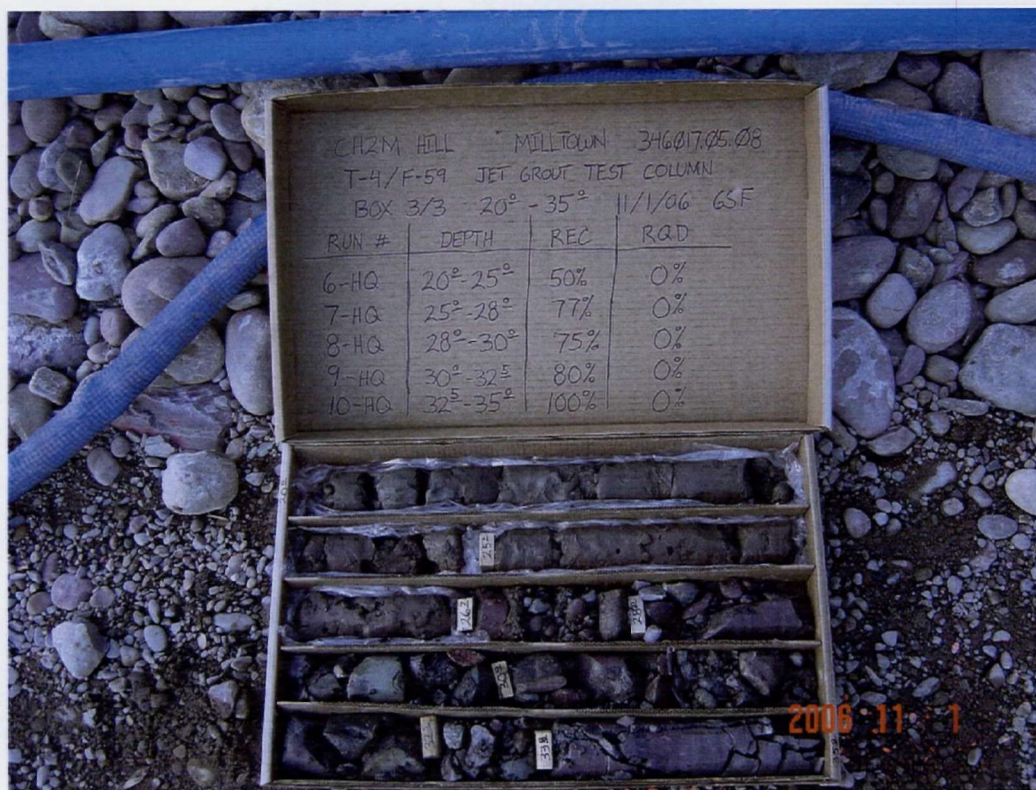 CH2M HILL MILLTOWN 346017.05.08
T-4/F-59 JET GROUT TEST COLUMN
BOX 3/3 20⁰ - 35⁰ 11/1/06 GSF
RUN # DEPTH REC RQD
6-HQ 20⁰-25⁰ 50% 0%
7-HQ 25⁰-28⁰ 77% 0%
8-HQ 28⁰-30⁰ 75% 0%
9-HQ 30⁰-32⁵ 80% 0%
10-HQ 32⁵-35⁰ 100% 0%
2006 11 1